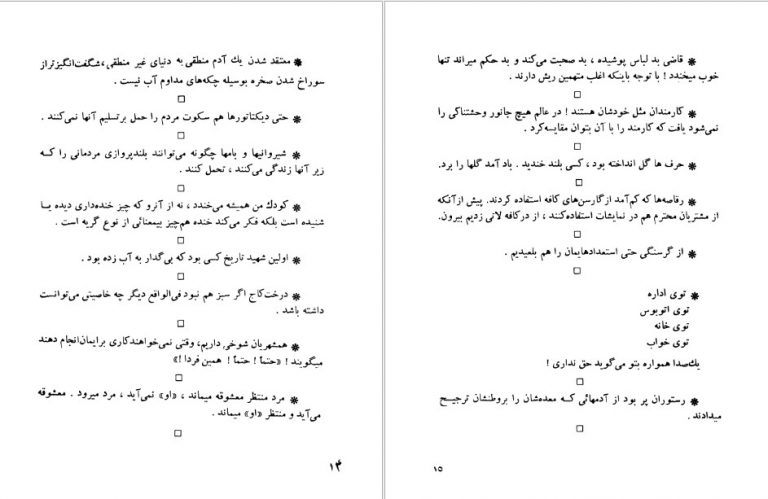 ❋ معتقد شدن یك آدم منطقی به دنیای غیر منطقی، شگفت‌انگیزتر از
سوراخ شدن صخره بوسیله چکه‌های مداوم آب نیست .
❋ حتی دیکتاتورها هم سکوت مردم را حمل برتسلیم آنها نمی‌کنند .
❋ شیروانیها و بامها چگونه می‌توانند بلندپروازی مردمانی را کـه
زیر آنها زندگی می‌کنند ، تحمل کنند .
❋ کودك من همیشه می‌خندد ، نه از آنرو که چیز خنده‌داری دیده یـا
شنیده است بلکه فکر می‌کند خنده هم‌چیز بیمعنائی از نوع گریه است .
❋ اولین شهید تاریخ کسی بود که بی‌گدار به آب زده بود .
❋ درخت‌کاج اگر سبز هم نبود فی‌الواقع دیگر چه خاصیتی می‌توانست
داشته باشد .
❋ همشهریان شوخی داریم، وقتی نمی‌خواهندکاری برایمان‌انجام دهند
میگویند ! «حتماً ! حتماً ! همین فردا !»
❋ مرد منتظر معشوقه میماند ، «او» نمی‌آید ، مرد میرود . معشوقه
می‌آید و منتظر «او» میماند .
۱۴
❋ قاضی بد لباس پوشیده ، بد صحبت می‌کند و بد حکم میراند تنها
خوب میخندد ! با توجه باینکه اغلب متهمین ریش دارند .
❋ کارمندان مثل خودشان هستند ! در عالم هیچ جانور وحشتناکی را
نمی‌شود یافت که کارمند را با آن بتوان مقایسه‌کرد .
❋ حرف ها گل انداخته بود ، کسی بلند خندید . باد آمد گلها را برد.
❋ رقاصه‌ها که کم‌آمد ازگارسن‌های کافه استفاده کردند. پیش ازآنکه
از مشتریان محترم هم در نمایشات استفاده‌کنند ، از درکافه لاتی زدیم بیرون.
❋ از گرسنگی حتی استعدادهایمان را هم بلعیدیم .
❋ توی اداره
توی اتوبوس
توی خانه
توی خواب
یك‌صدا همواره بتو می‌گوید حق نداری !
❋ رستوران پر بود از آدمهائی کـه معده‌شان را بروطنشان ترجیـح
میدادند .
۱۵